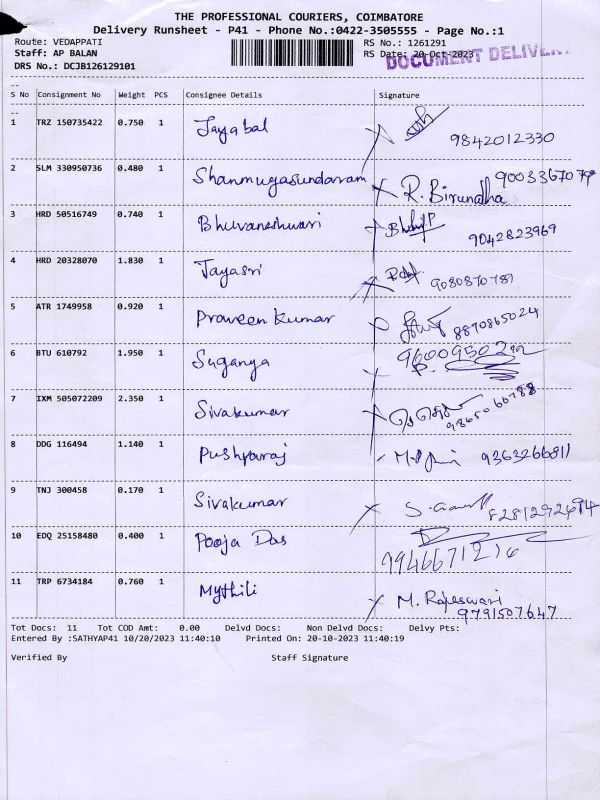 THE PROFESSIONAL COURIERS, COIMBATORE
Delivery Runsheet - P41 - Phone No.:0422-3505555 - Page No.:1
Route: VEDAPPATI RS No.: 1261291
Staff: AP BALAN RS Date: 20-Oct-2023
DOCUMENT DELIVERY
DRS No.: DCJB126129101
S No Consignment No Weight PCS Consignee Details Signature
1 TRZ 150735422 0.750 1 Jayabal 9842012330
2 SLM 330950736 0.480 1 Shanmugasundaram R. Birundha
3 HRD 50516749 0.740 1 Bhuvaneshwari 9042823969
4 HRD 20328070 1.830 1 Jayasri 9080870787
5 ATR 1749958 0.920 1 Praveen Kumar 8870865024
6 BTU 610792 1.950 1 Suganya
7 IXM 505072209 2.350 1 Sivakumar 9865066788
8 DDG 116494 1.140 1 Pushparaj 9363266811
9 TNJ 300458 0.170 1 Sivakumar
10 EDQ 25158480 0.400 1 Pooja Das
11 TRP 6734184 0.760 1 Mythili M. Rajeswari
9791507647
Tot Docs: 11 Tot COD Amt: 0.00 Delvd Docs: Non Delvd Docs: Delvy Pts:
Entered By :SATHYAP41 10/20/2023 11:40:10 Printed On: 20-10-2023 11:40:19
Verified By Staff Signature